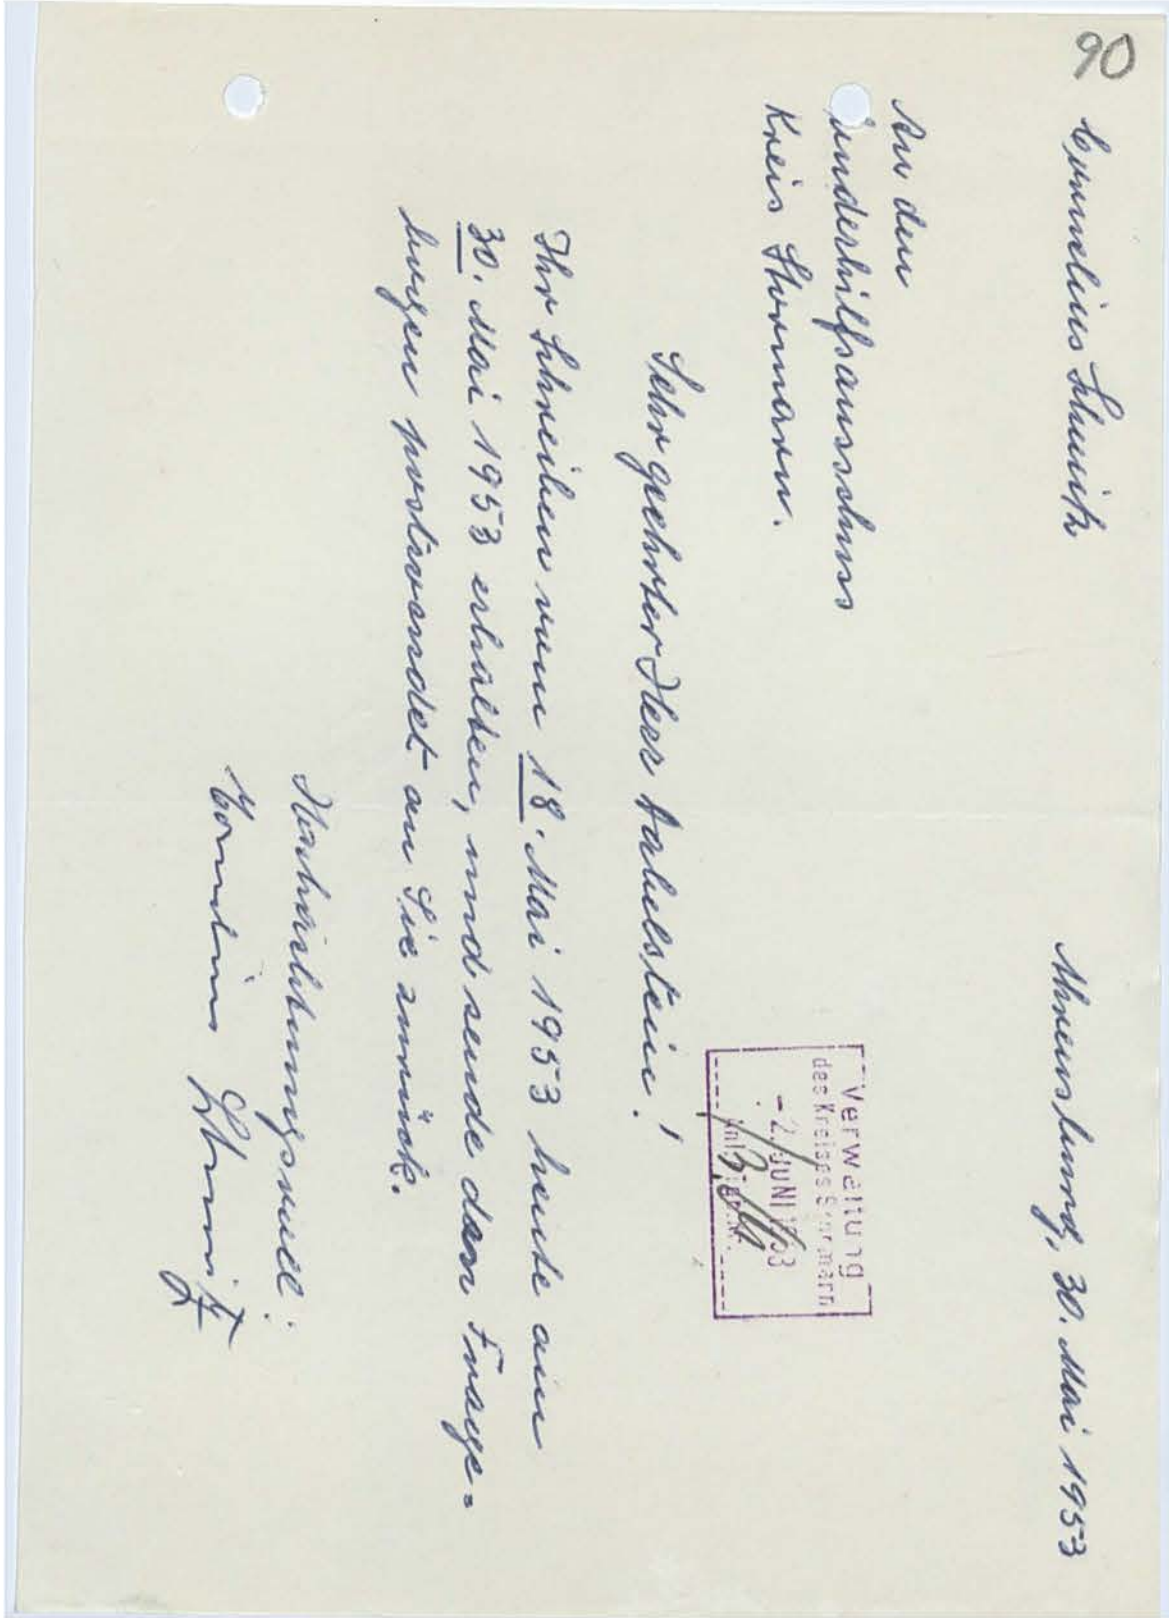 90
Cornelius Schmitz
Ahrensburg, 30. Mai 1953
An den
Sonderhilfsausschuss
Kreis Stormarn.
Verwaltung
des Kreises Stormarn
- 2. JUNI 1953
Sehr geehrter Herr Dabelstein!
Ihr Schreiben vom 18. Mai 1953 heute am
30. Mai 1953 erhalten, und sende den Frage=
bogen postwendet an Sie zurück.
Hochachtungsvoll:
Cornelius Schmitz